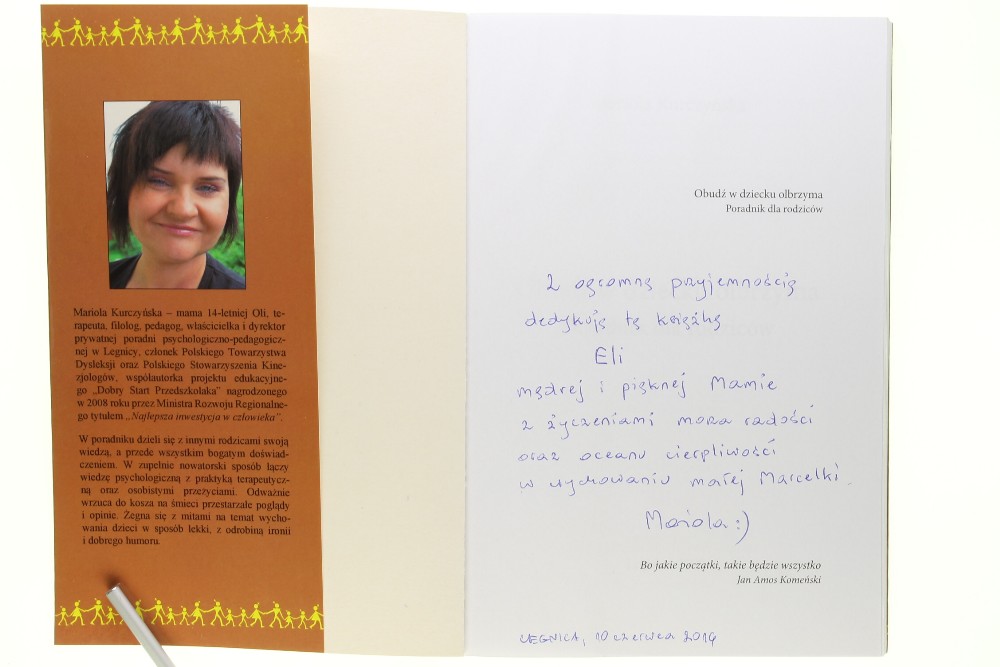 Mariola Kurczyńska – mama 14-letniej Oli, te-
rapeuta, filolog, pedagog, właścicielka i dyrektor
prywatnej poradni psychologiczno-pedagogicz-
nej w Legnicy, członek Polskiego Towarzystwa
Dysleksji oraz Polskiego Stowarzyszenia Kine-
zjologów, współautorka projektu edukacyjne-
go „Dobry Start Przedszkolaka” nagrodzonego
w 2008 roku przez Ministra Rozwoju Regionalne-
go tytułem „Najlepsza inwestycja w człowieka”.
W poradniku dzieli się z innymi rodzicami swoją
wiedzą, a przede wszystkim bogatym doświad-
czeniem. W zupełnie nowatorski sposób łączy
wiedzę psychologiczną z praktyką terapeutycz-
ną oraz osobistymi przeżyciami. Odważnie
wrzuca do kosza na śmieci przestarzałe poglądy
i opinie. Żegna się z mitami na temat wycho-
wania dzieci w sposób lekki, z odrobiną ironii
i dobrego humoru.
Obudź w dziecku olbrzyma
Poradnik dla rodziców
Z ogromną przyjemnością
dedykuję tę książkę
Eli
mądrej i pięknej Mamie
z życzeniami morza radości
oraz oceanu cierpliwości
w wychowaniu małej Marcelki.
Mariola :)
Bo jakie początki, takie będzie wszystko
Jan Amos Komeński
LEGNICA, 10 czerwca 2014